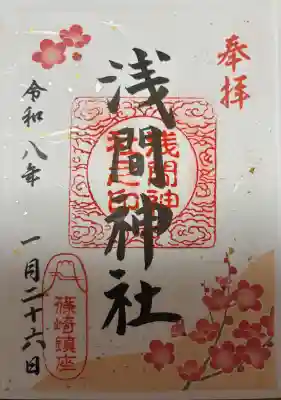 奉拝
浅間神社
浅間神社之印
令和八年 一月二十六日
篠崎鎮座